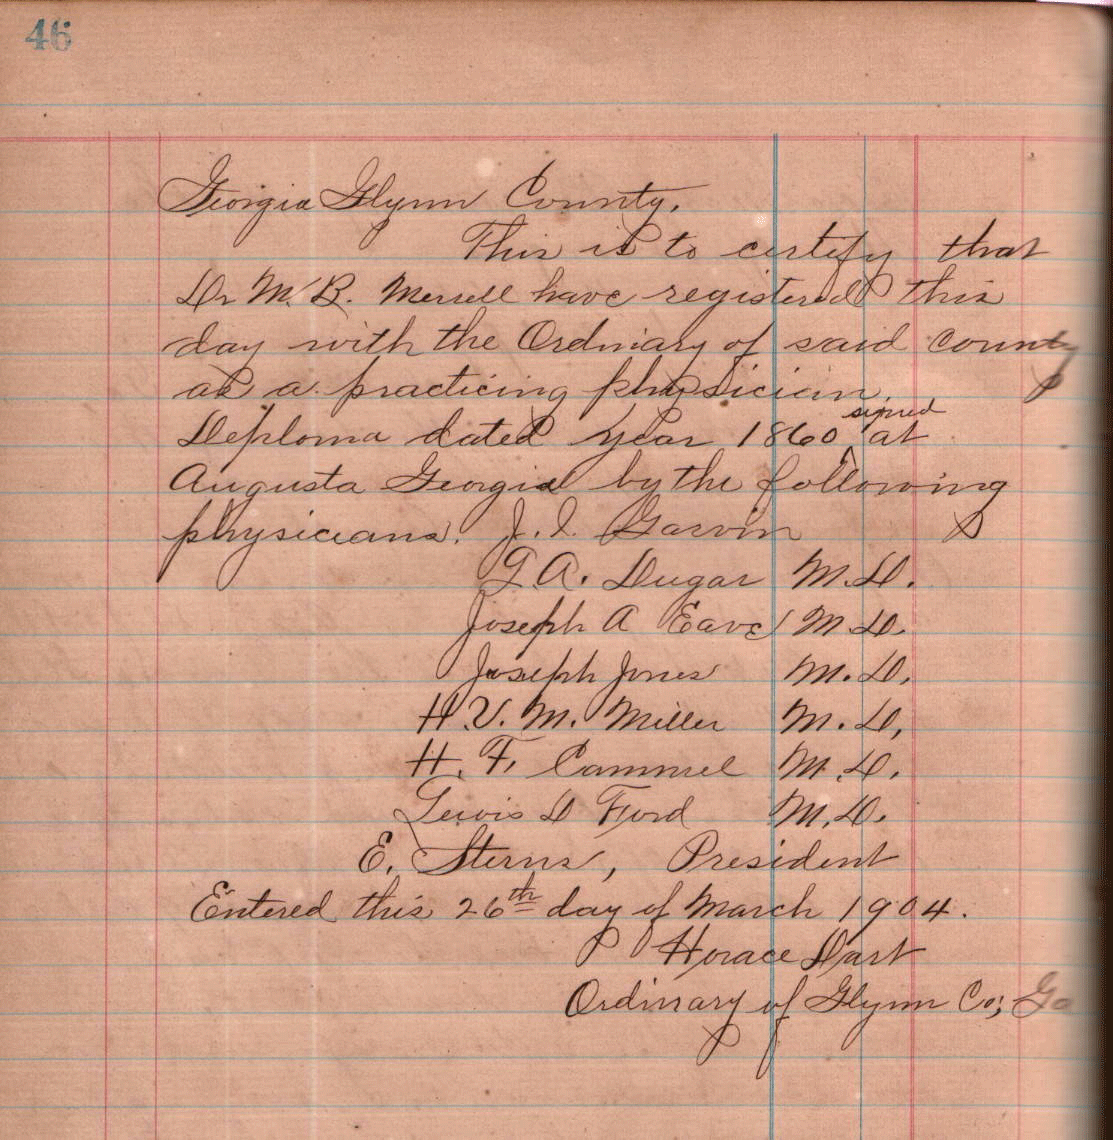 46
Georgia Glynn County.
This is to certify that
Dr M. B. Merrell have registered this
day with the Ordinary of said county
as a practicing physician.
signed
Deploma dated year 1860 ^ at
Augusta Georgia by the following
physicians. J. I. Garvin
G. A. Dugar M.D.
Joseph A Eave M D.
Joseph Jones M. D.
H. V. M. Miller M. D.
H. F. Cammel M. D.
Lewis D Ford M. D.
E. Sterns, President
Entered this 26th day of March 1904.
Horace Dart
Ordinary of Glynn Co; Ga